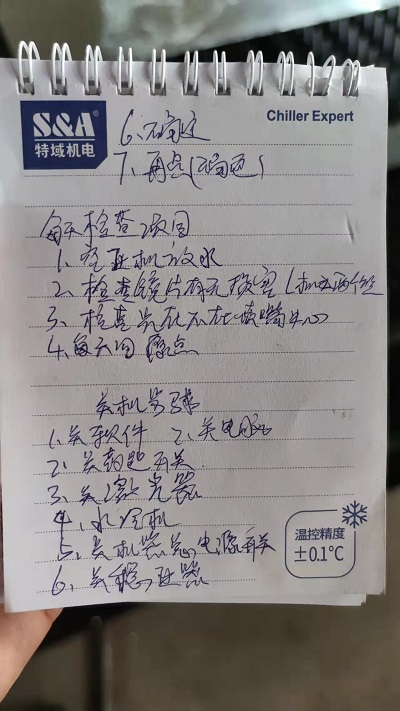 S&A®
特域机电
Chiller Expert
6、不确定
7、再点(不确定)
每天检查
1、空压机放水
2、检查镜片有无损害(
3、检查光在不在喷嘴中心
4、每天回原点
关机步骤
1、关软件 2、关电脑
2、关钥匙开关
3、关激光器
4、水冷机
5、关机器总电源开关
6、关稳压器
温控精度
±0.1°C